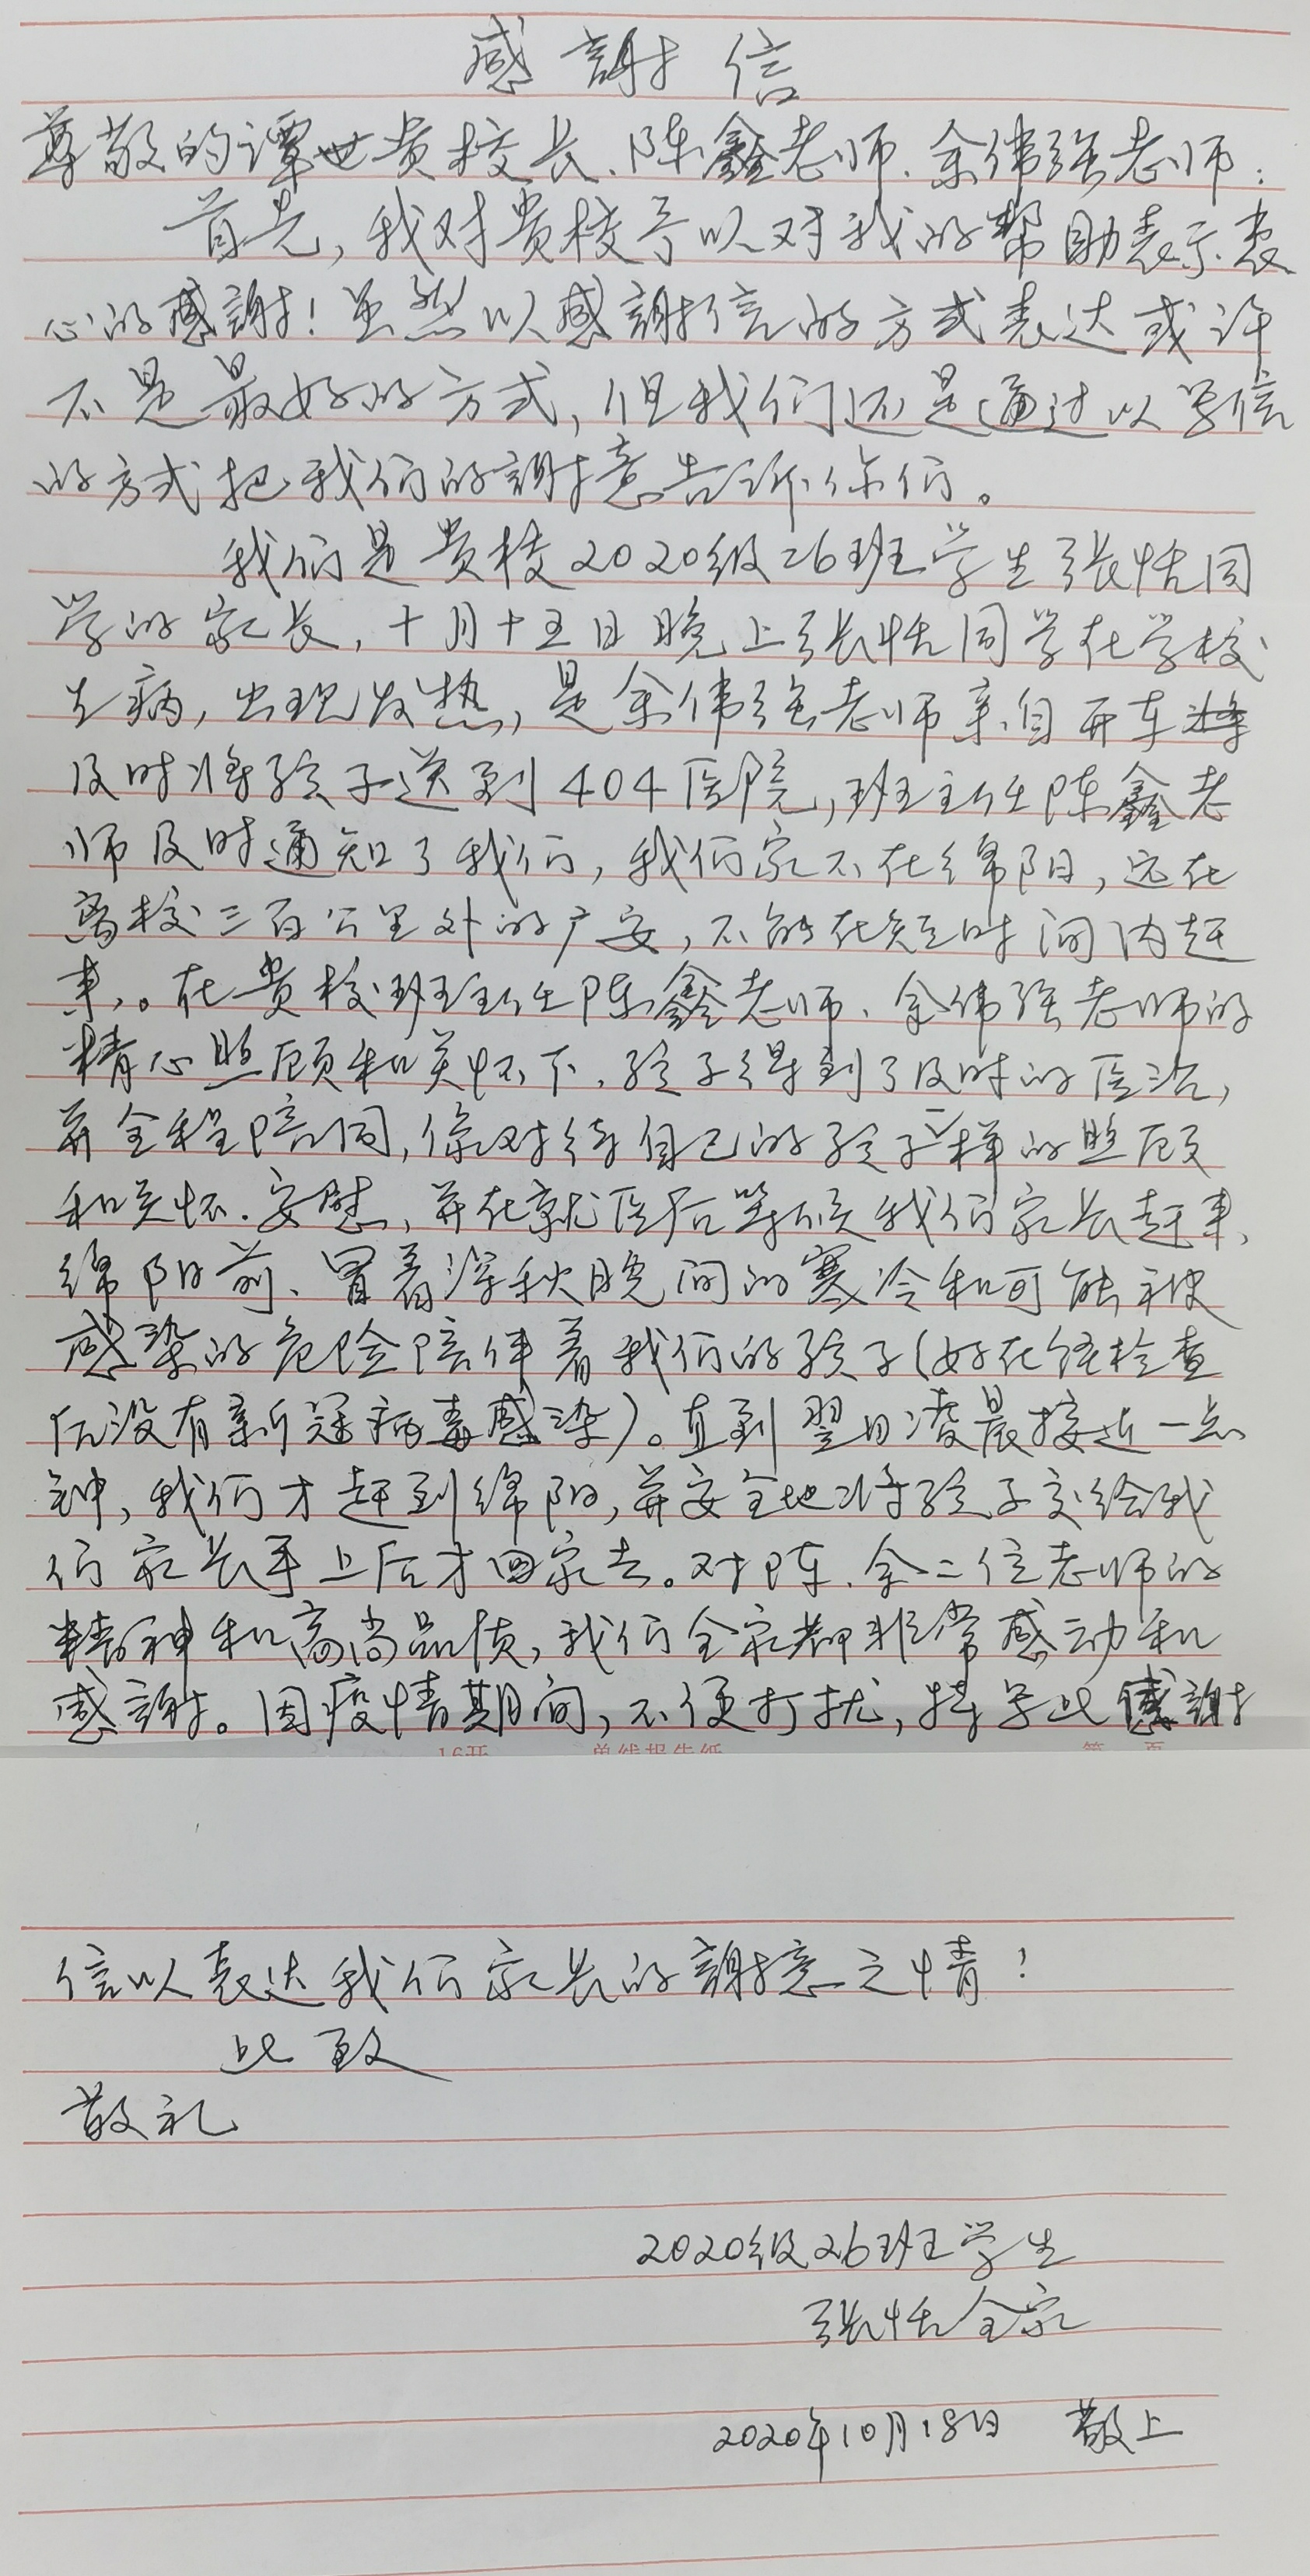 感謝信
尊敬的谭世贵校长、陈鑫老师、余伟强老师：
首先，我对贵校予以对我的帮助表示衷
心的感謝！虽然以感謝信的方式表达或许
不是最好的方式，但我们还是通过以写信
的方式把我们的謝意告诉你们。
我们是贵校2020级26班学生张恬同
学的家长，十月十五日晚上张恬同学在学校
生病，出现发热，是余伟强老师亲自开车
及时将孩子送到404医院，班主任陈鑫老
师及时通知了我们，我们家不在绵阳，远在
离校三百公里外的广安，不能在短时间内赶
来。在贵校班主任陈鑫老师、余伟强老师的
精心照顾和关怀下，孩子得到了及时的医治，
并全程陪同，像对待自己的孩子一样的照顾
和关怀、安慰，并在就医后等候我们家长赶来
绵阳前、冒着深秋晚间的寒冷和可能被
感染的危险陪伴着我们的孩子（好在经检查
后没有新冠病毒感染）。直到翌日凌晨接近一点
钟，我们才赶到绵阳，并安全地将孩子交给我
们家长手上后才回家去。对陈、余二位老师的
精神和高尚品质，我们全家都非常感动和
感謝。因疫情期间，不便打扰，特写此感謝
16开 单线报告纸 第 页
信以表达我们家长的謝意之情！
此致
敬礼
2020级26班学生
张恬全家
2020年10月18日 敬上